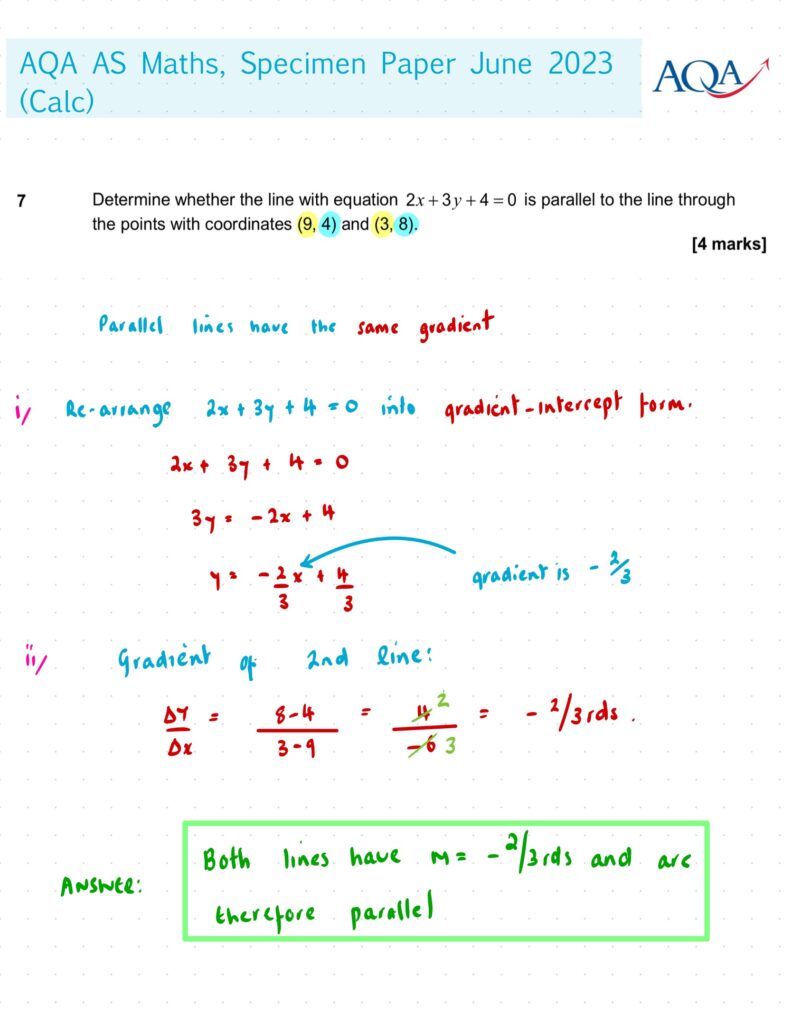 AQA AS Maths, Specimen Paper June 2023
(Calc)
AQA
7 Determine whether the line with equation 2x + 3y + 4 = 0 is parallel to the line through
the points with coordinates (9, 4) and (3, 8).
[4 marks]
Parallel lines have the same gradient
i/ Re-arrange 2x + 3y + 4 = 0 into gradient-intercept form.
2x + 3y + 4 = 0
3y = -2x + 4
y = -2/3 x + 4/3
gradient is - 2/3
ii/ Gradient of 2nd line:
ΔY/Δx = 8-4/3-9 = 4/-6 2/3 = - 2/3rds.
ANSWER:
Both lines have M = - 2/3rds and are
therefore parallel